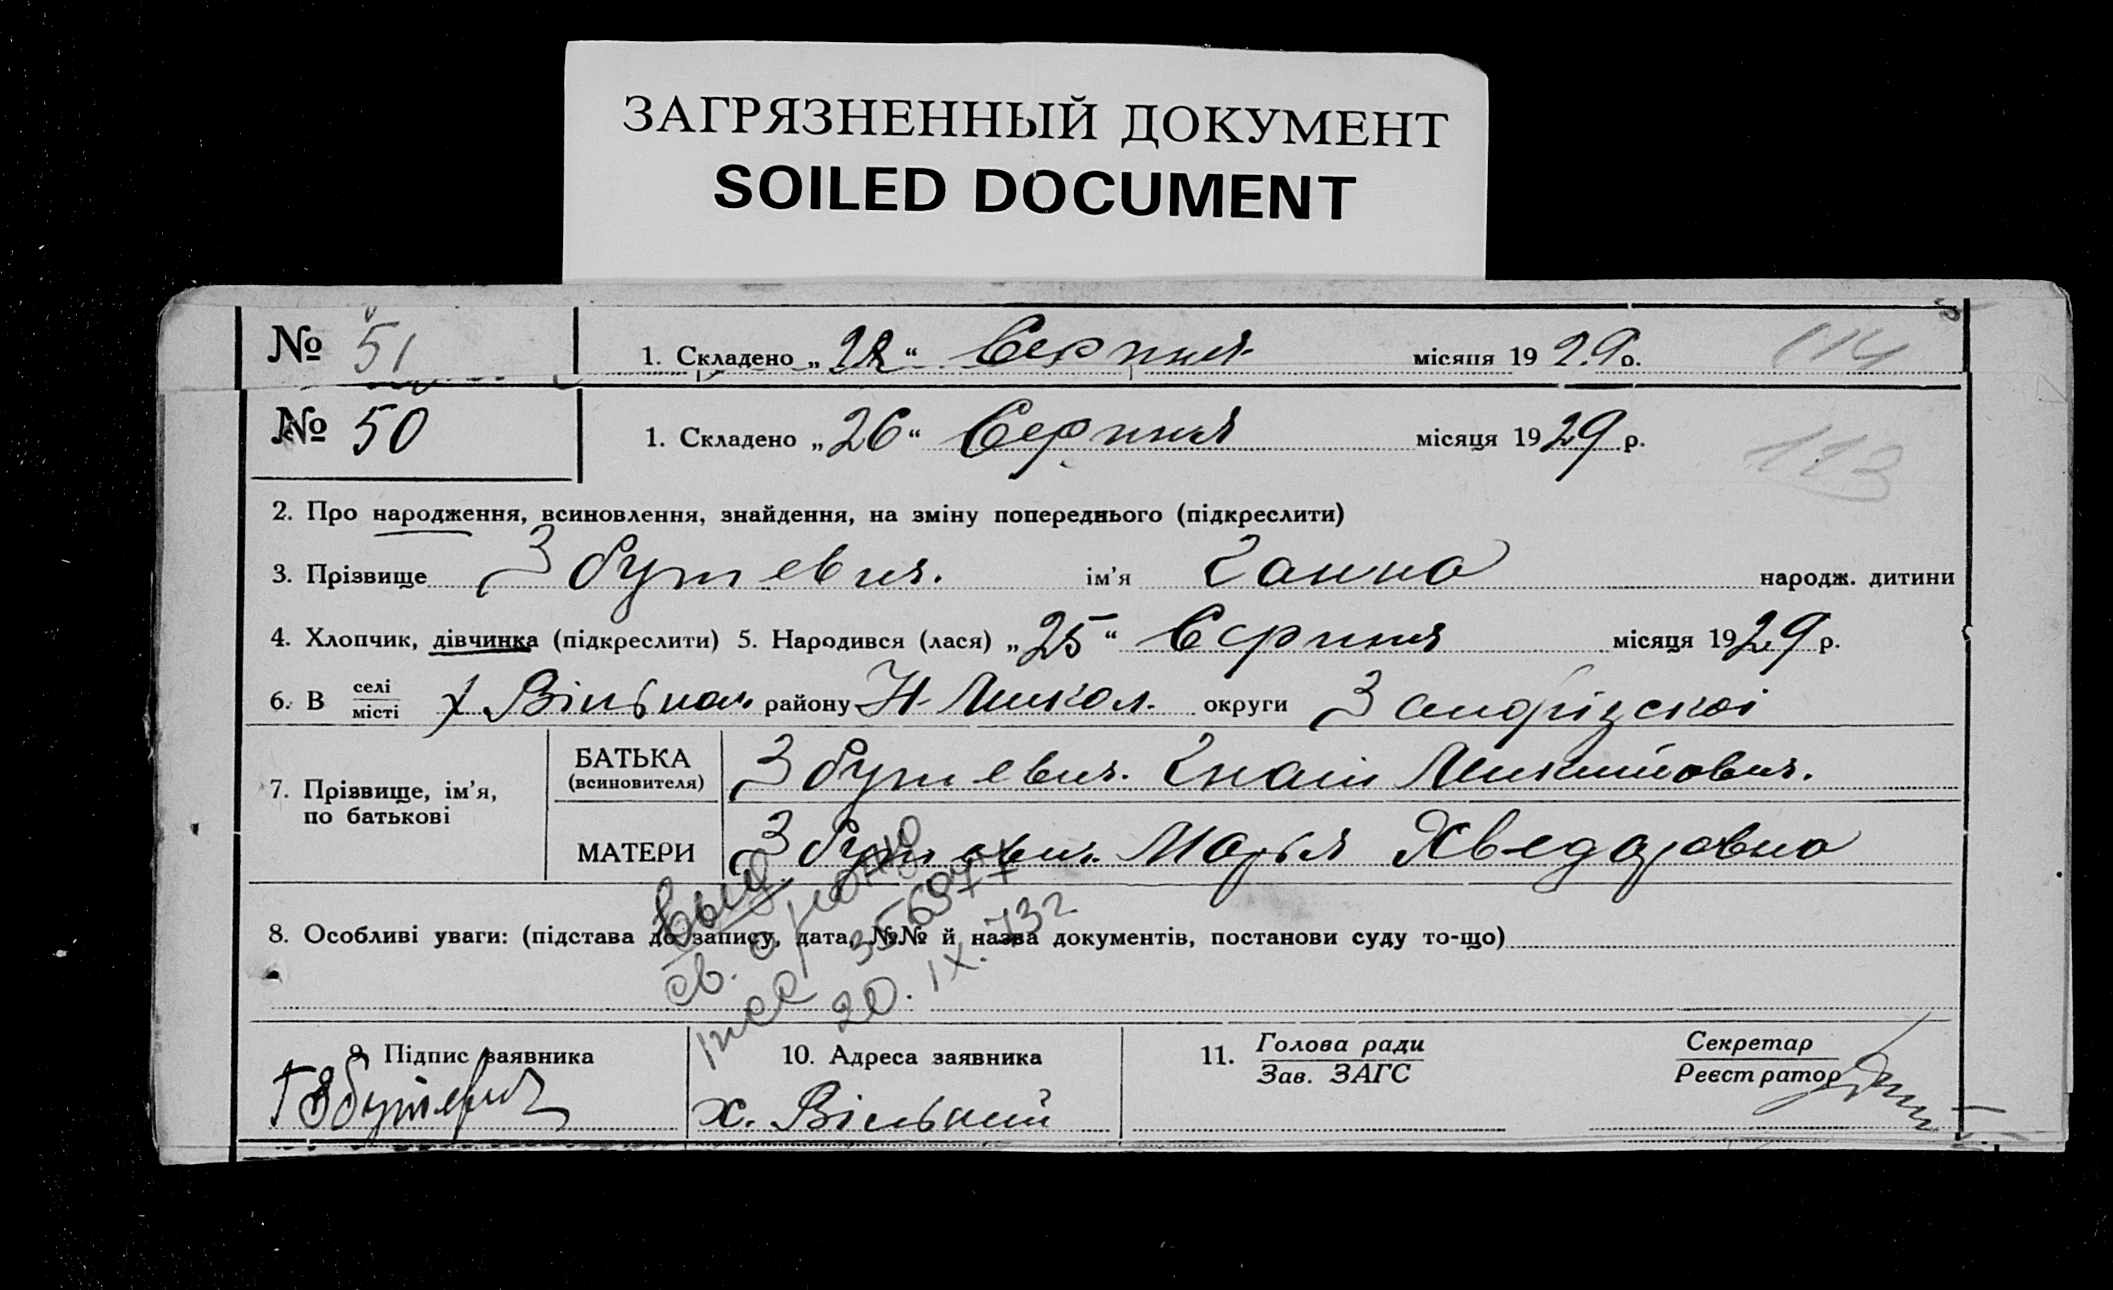 ЗАГРЯЗНЕННЫЙ ДОКУМЕНТ
SOILED DOCUMENT
№ 51 1. Складено „28“ Серпня місяця 1929 р. 114
№ 50 1. Складено „26“ Серпня місяця 1929 р. 113
2. Про народження, всиновлення, знайдення, на зміну попереднього (підкреслити)
3. Прізвище Збутевич. ім’я Ганна народж. дитини
4. Хлопчик, дівчинка (підкреслити) 5. Народився (лася) „25“ Серпня місяця 1929 р.
6. В селі місті х Вільном. району Н-Микол. округи Запорізскоі
7. Прізвище, ім’я, по батькові
БАТЬКА (всиновителя) Збутевич. Гнат Микитович.
МАТЕРИ Збутевич. Марья Хведоровна
8. Особливі уваги: (підстава до запису, дата, №№ й назва документів, постанови суду то-що)
св. о рожд
356977
20. IX. 73г
9. Підпис заявника 10. Адреса заявника 11. Голова ради Зав. ЗАГС Секретар Реєстратор
Г Збутевич х. Вільний